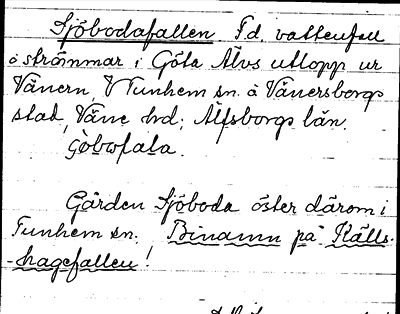 Sjöbodafallen F.d. vattenfall
o strömmar i Göta Älvs utlopp ur
Vänern, V Tunhem sn. o Vänersborgs
stad, Väne hd; Älfsborgs län.
Gården Sjöboda öster därom i
Tunhem sn. Binamn på Källs-
-hagefallen!